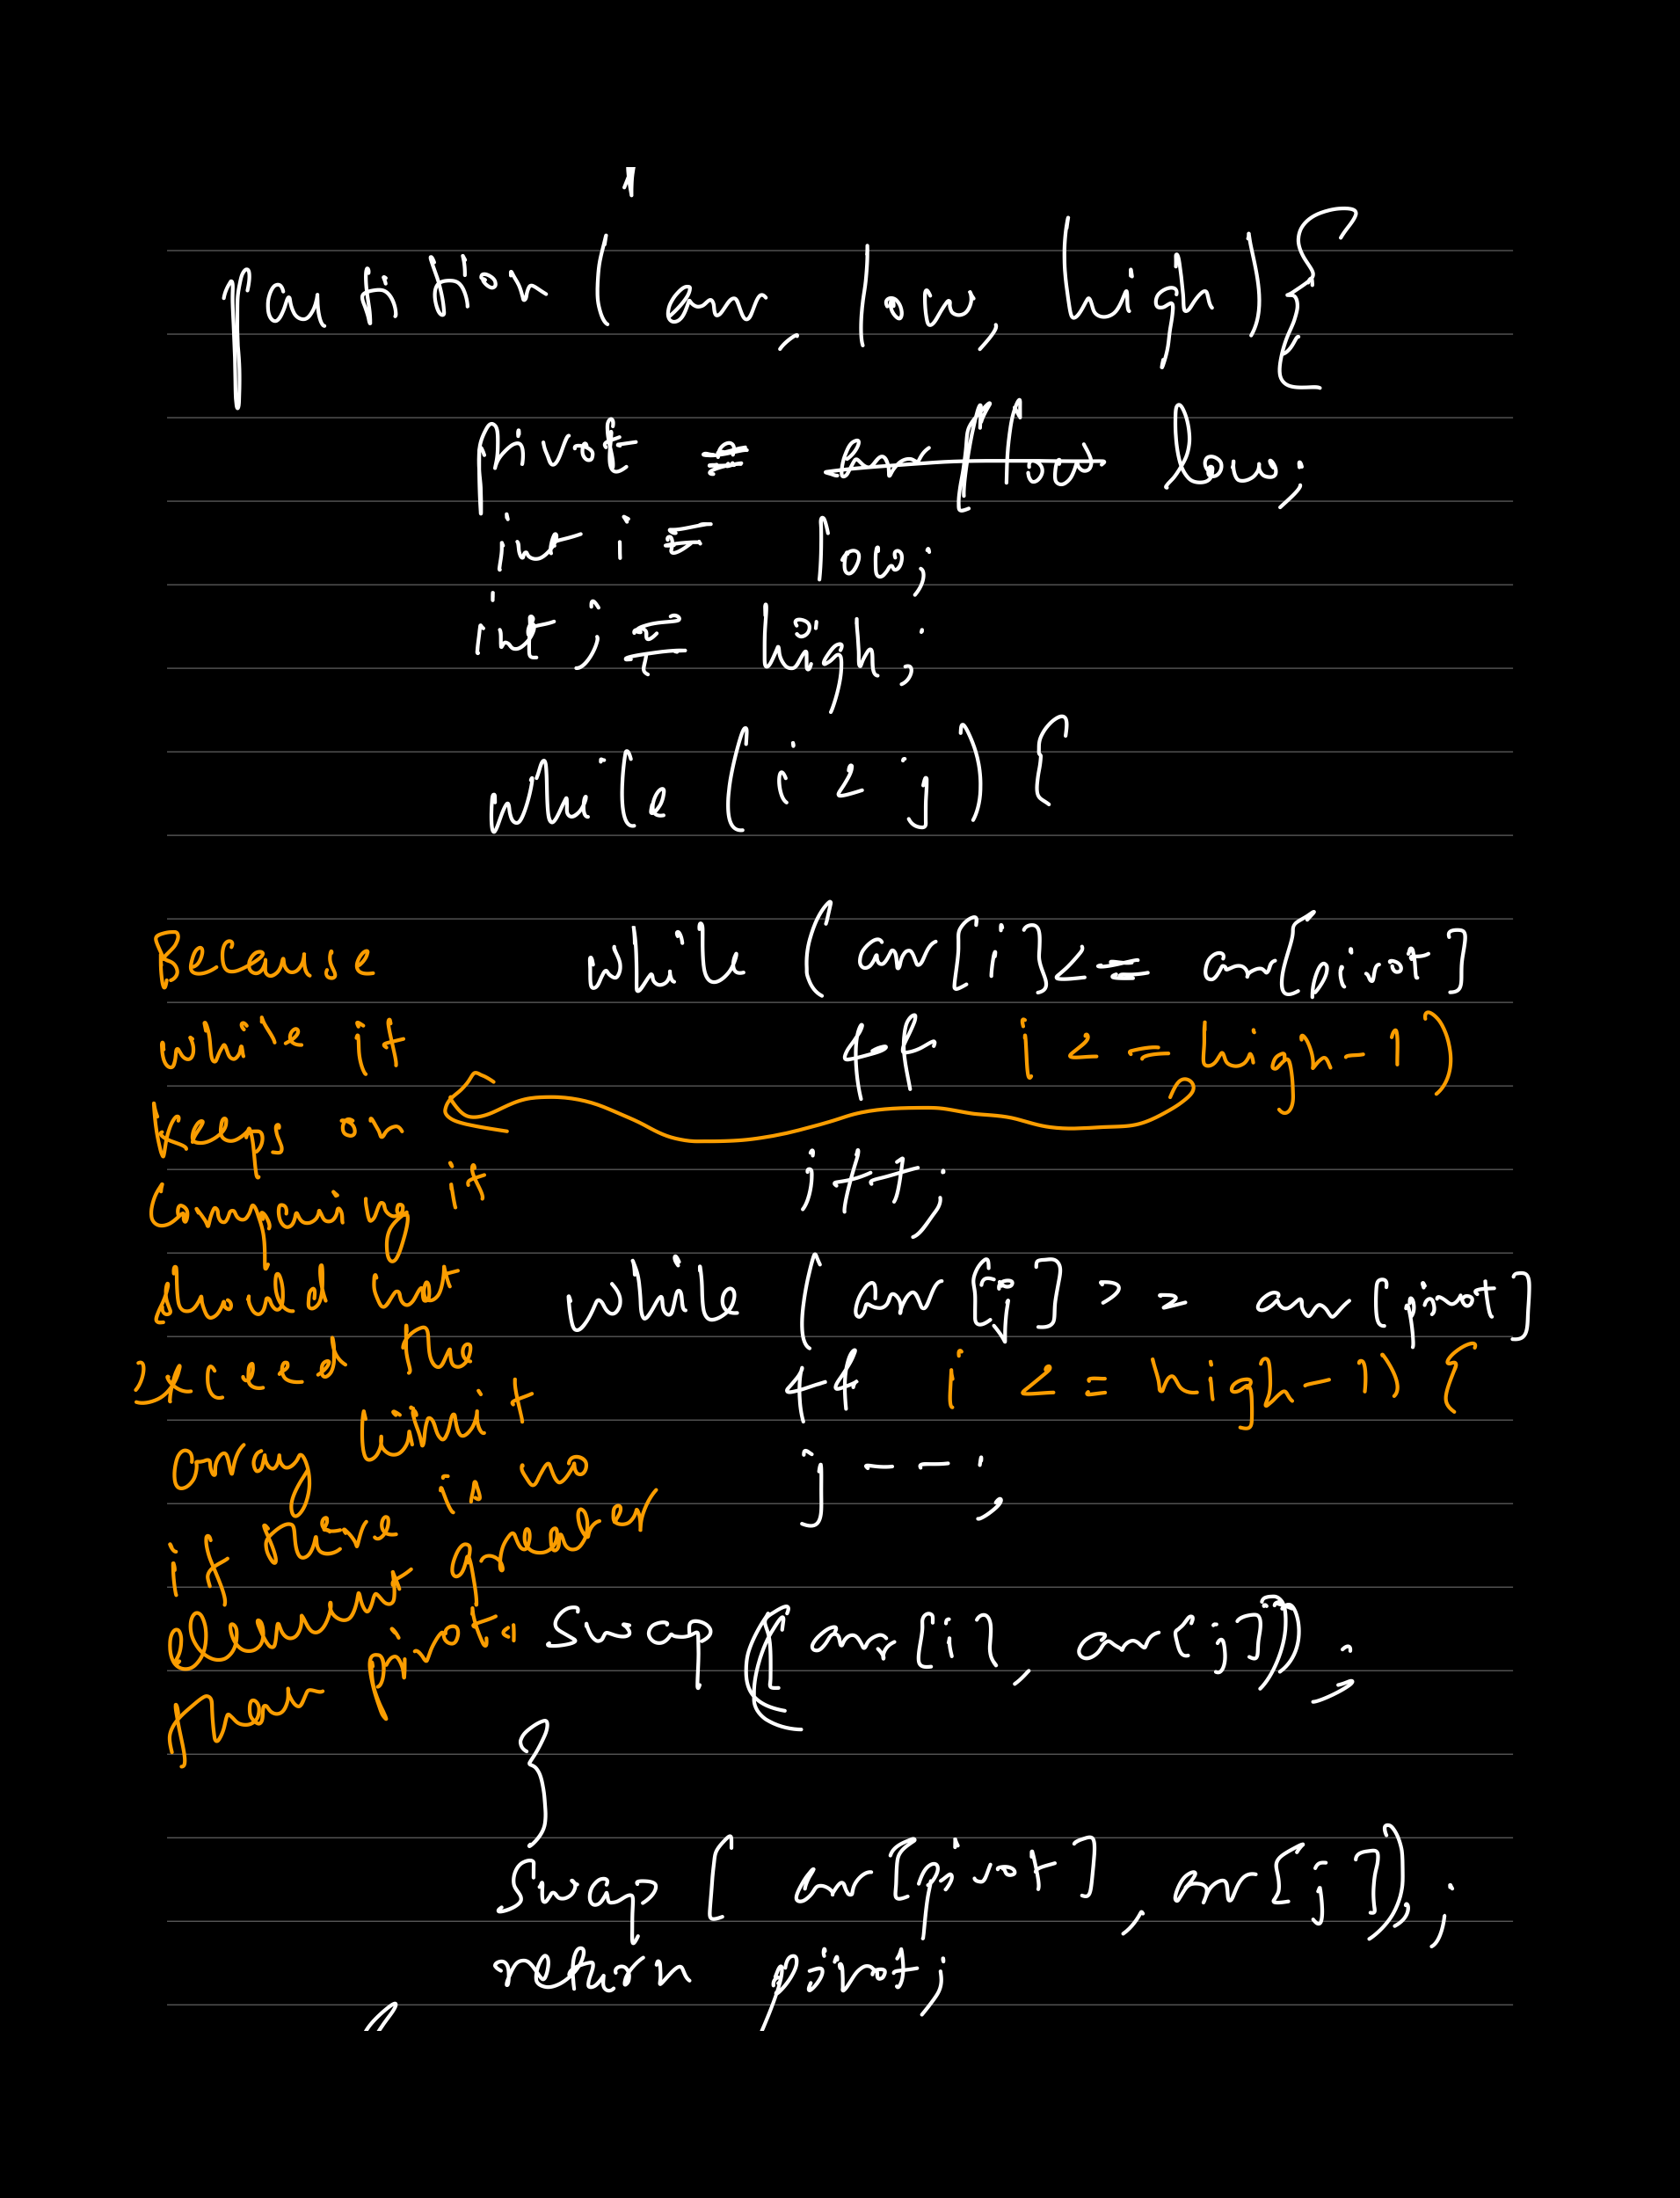 partition ( arr, low, high) {
pivot = arr[low low;
int i = low;
int j = high;
while (i < j) {
while (arr[i] <= arr[pivot]
&& i <= high-1)
i++;
while (arr[j] >= arr[pivot]
&& i <= high-1) {
j--;
swap (arr[i], arr[j]);
}
swap [ arr[pivot], arr[j]);
return pivot;
Because
while it
keeps on
comparing it
should not
exceed the
array limit
if there is no
element greater
than pivot.